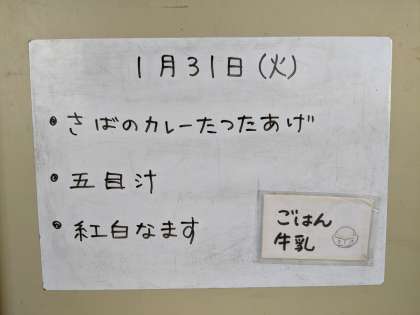 1月31日(火)
・さばのカレーたつたあげ
・五目汁
・紅白なます
ごはん
牛乳